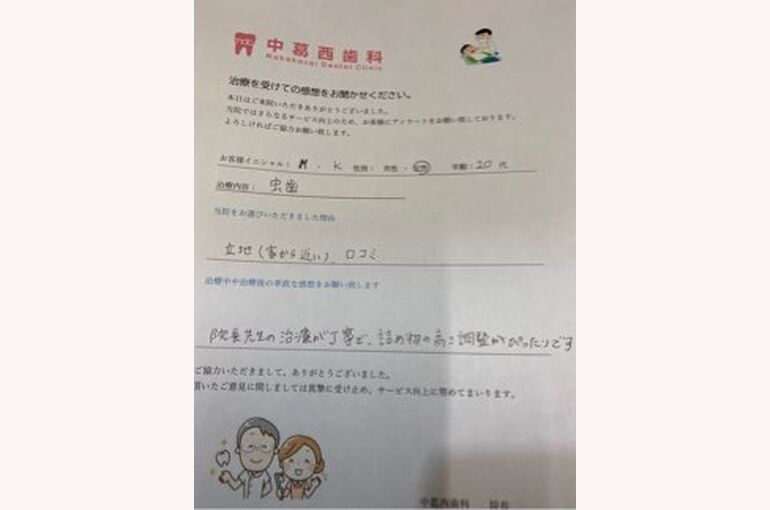 中葛西歯科
Nakakasai Dental Clinic
治療を受けての感想をお聞かせください。
本日はご来院いただきありがとうございました。
当院ではさらなるサービス向上のため、お客様にアンケートをお願い致しております。
よろしければご協力お願い致します。
お客様イニシャル: M ・ K 性別: 男性 ・ 女性 年齢: 20 代
治療内容: 虫歯
当院をお選びいただきました理由
立地(家から近い)、口コミ
治療中や治療後の率直な感想をお願い致します
院長先生の治療が丁寧で、詰め物の高さ調整がぴったりです
ご協力いただきまして、ありがとうございました。
頂いたご意見に関しましては真摯に受け止め、サービス向上に努めてまいります。
中葛西歯科